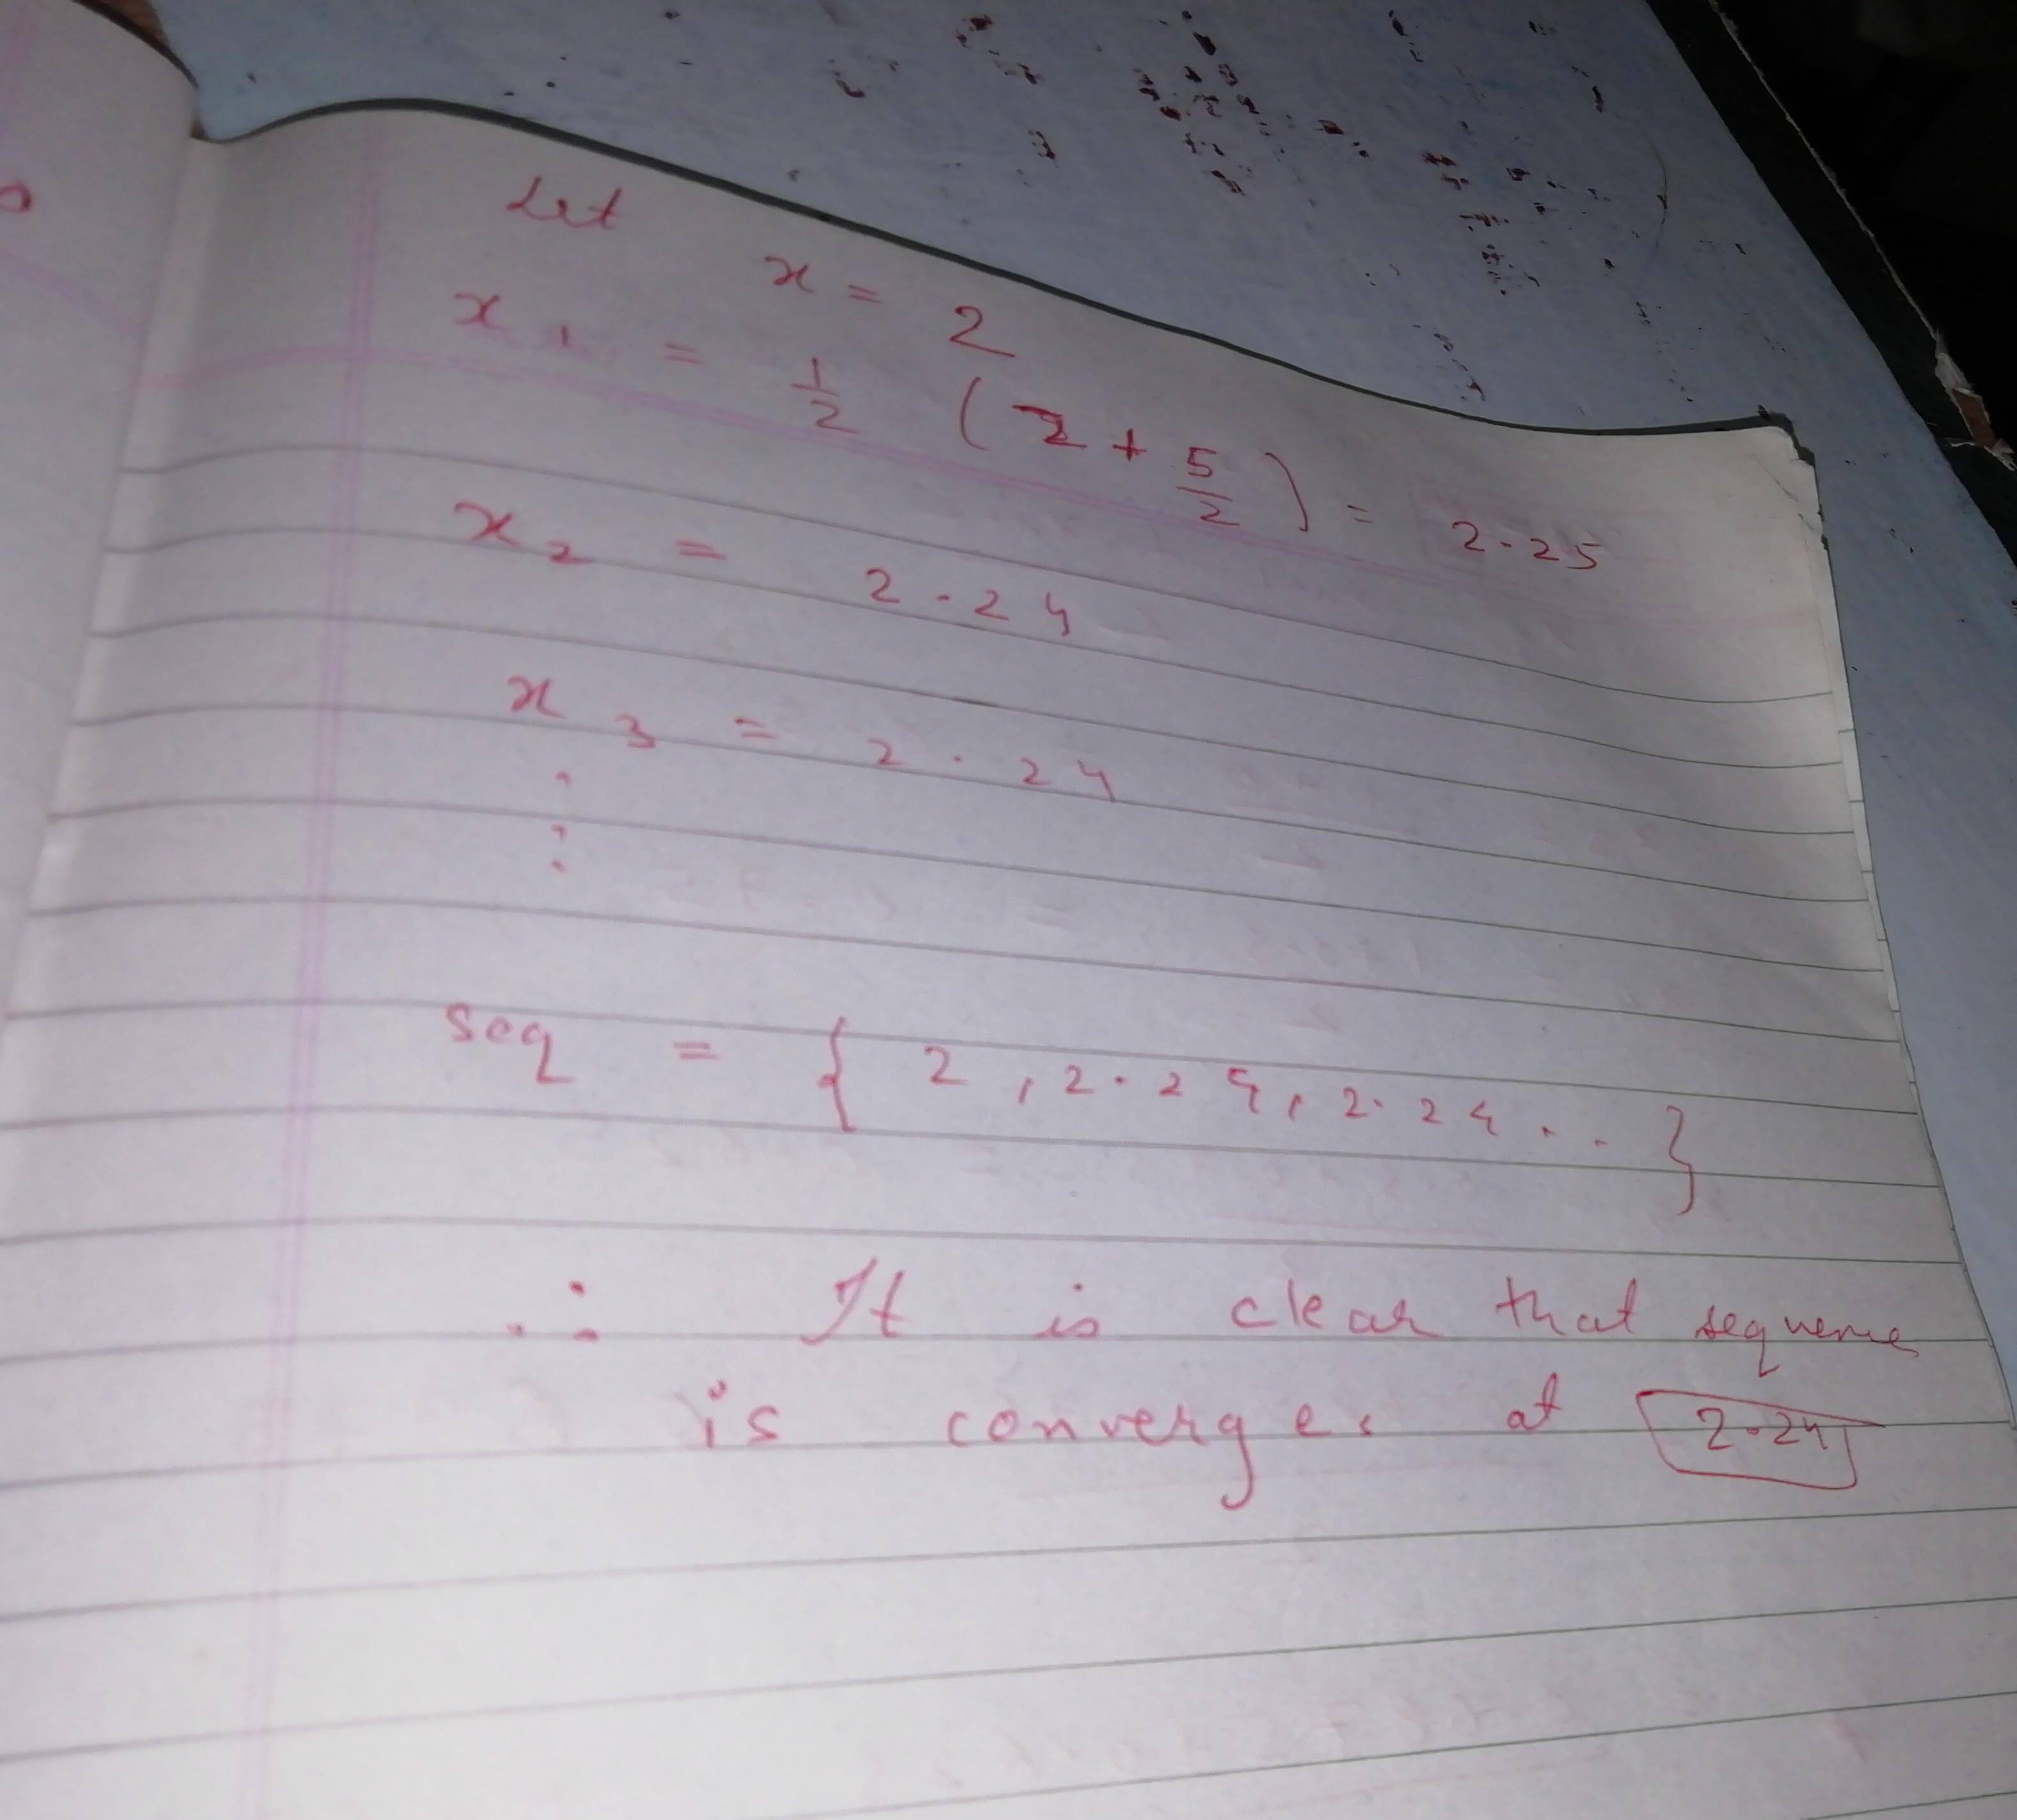 Let
x = 2
x1 = 1/2 ( 2 + 5/2 ) = 2.25
x2 = 2.24
x3 = 2.24
seq = { 2 , 2.24 , 2.24 .. }
∴ It is clear that sequence
is converges at 2.24